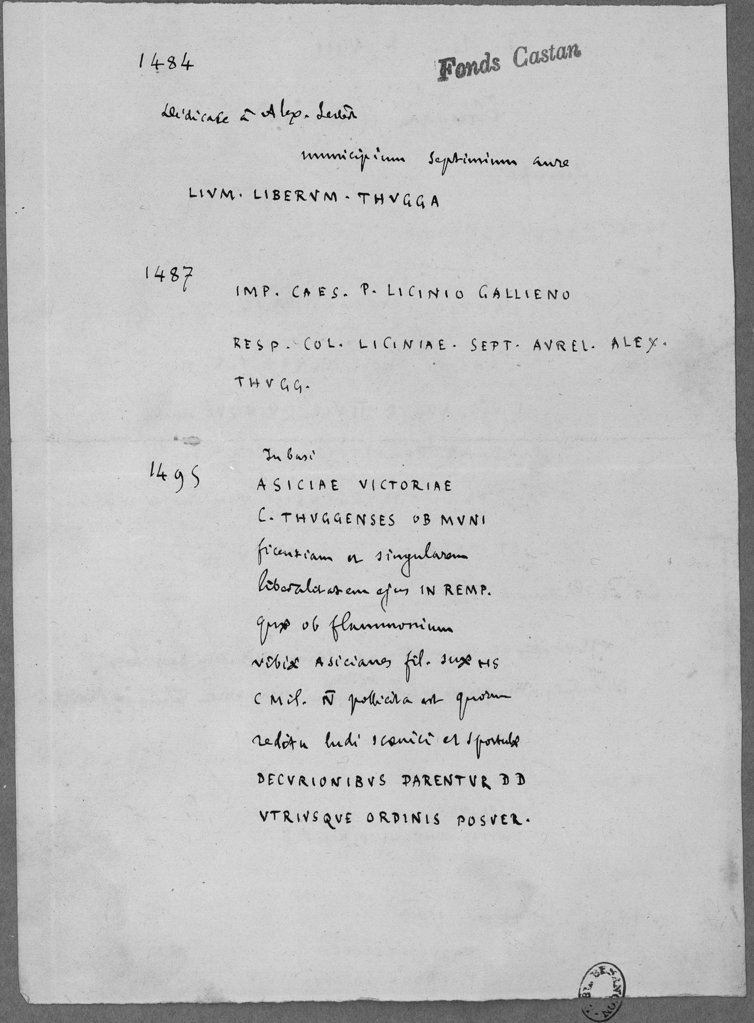 1484
Fonds Castan
Dédicace à Alex.
municipium septimium aure
LIVM. LIBERVM. THVGGA
1487
IMP. CAES. P. LICINIO GALLIENO
RESP. COL. LICINIAE. SEPT. AVREL. ALEX.
THVGG.
In basi
1495
ASICIAE VICTORIAE
C. THVGGENSES OB MVNI
ficentiam et singularem
liberalitatem ejus IN REMP.
quæ ob flammonium
vibiæ Asicianes fil. suæ HS
C Mil. N̄ pollicita est quorum
reditu ludi scænici et sportulæ
DECVRIONIBVS DARENTVR DD
VTRIVSQVE ORDINIS POSVER.
BIBL. BESANÇON